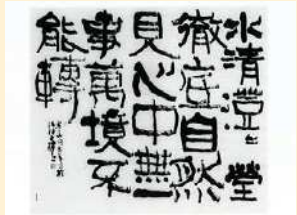 水清澄〻瑩
徹底自然
見心中無一
事萬境不
能轉